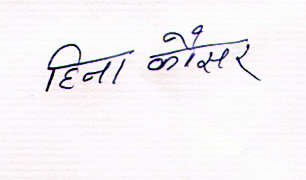 हिना कौसर